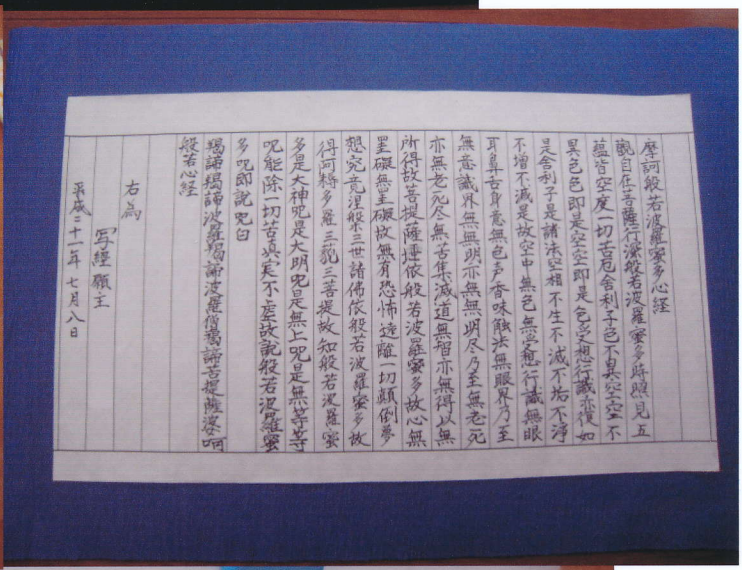 摩訶般若波羅蜜多心経
観自在菩薩行深般若波羅蜜多時照見五
蘊皆空度一切苦厄舎利子色不異空空不
異色色即是空空即是色受想行識亦復如
是舎利子是諸法空相不生不滅不垢不浄
不増不減是故空中無色無受想行識無眼
耳鼻舌身意無色声香味触法無眼界乃至
無意識界無無明亦無無明尽乃至無老死
亦無老死尽無苦集滅道無智亦無得以無
所得故菩提薩埵依般若波羅蜜多故心無
罣礙無罣礙故無有恐怖遠離一切顛倒夢
想究竟涅槃三世諸佛依般若波羅蜜多故
得阿耨多羅三藐三菩提故知般若波羅蜜
多是大神呪是大明呪是無上呪是無等等
呪能除一切苦真実不虚故説般若波羅蜜
多呪即説呪曰
羯諦羯諦波羅羯諦波羅僧羯諦菩提薩婆呵
般若心経
右為
写経願主
平成二十一年七月八日